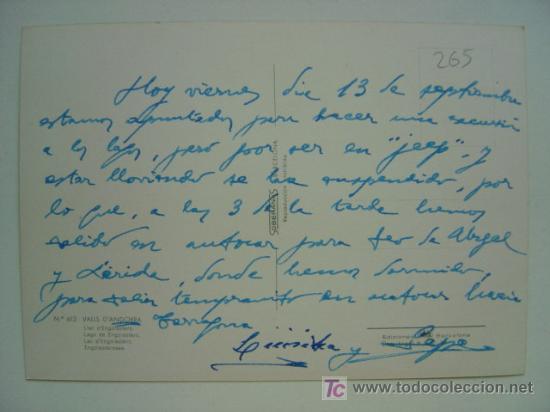 265
Hoy viernes día 13 de septiembre
estamos apuntados para hacer una excursión
a los lagos, pero por ser en "jeep" y
estar lloviendo se ha suspendido, por
lo que, a las 3 de la tarde hemos
salido en autocar para Seo de Urgel
y Lérida, donde hemos dormido,
para salir temprano en autocar hacia
Tarragona
y Papá
SOBERANAS
BARCELONA
Reproducción prohibida
N.º 612 VALLS D'ANDORRA
Llac d'Engolasters
Lago de Engolasters
Lac d'Engolasters
Engolasterssee
Barcelona
todocoleccion
www.todocoleccion.net